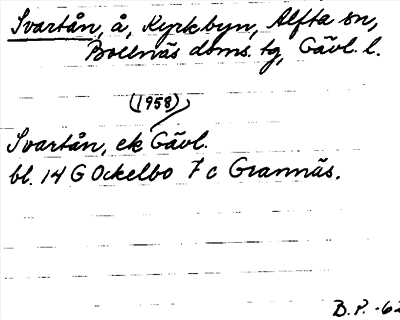 Svartån, å, Kyrkbyn, Alfta sn,
Bollnäs doms. tg, Gävl. l.
(1958)
Svartån, ek Gävl.
bl. 14 G Ockelbo 7 c Grannäs.
B.P. -62